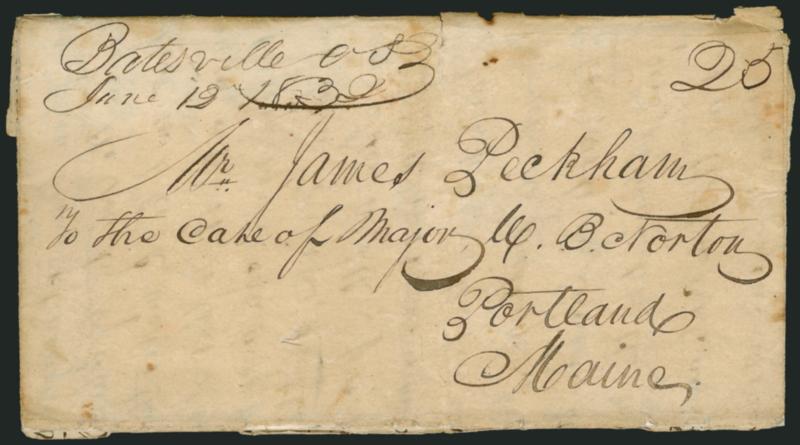 Batesville O S
June 12 1832
25
Mr. James Peckham
To the Care of Major M. B. Norton
Portland
Maine